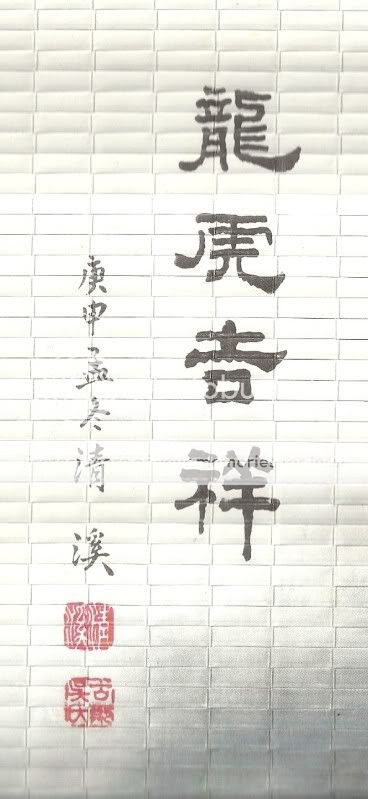 龍虎吉祥
庚申孟冬清溪
清溪